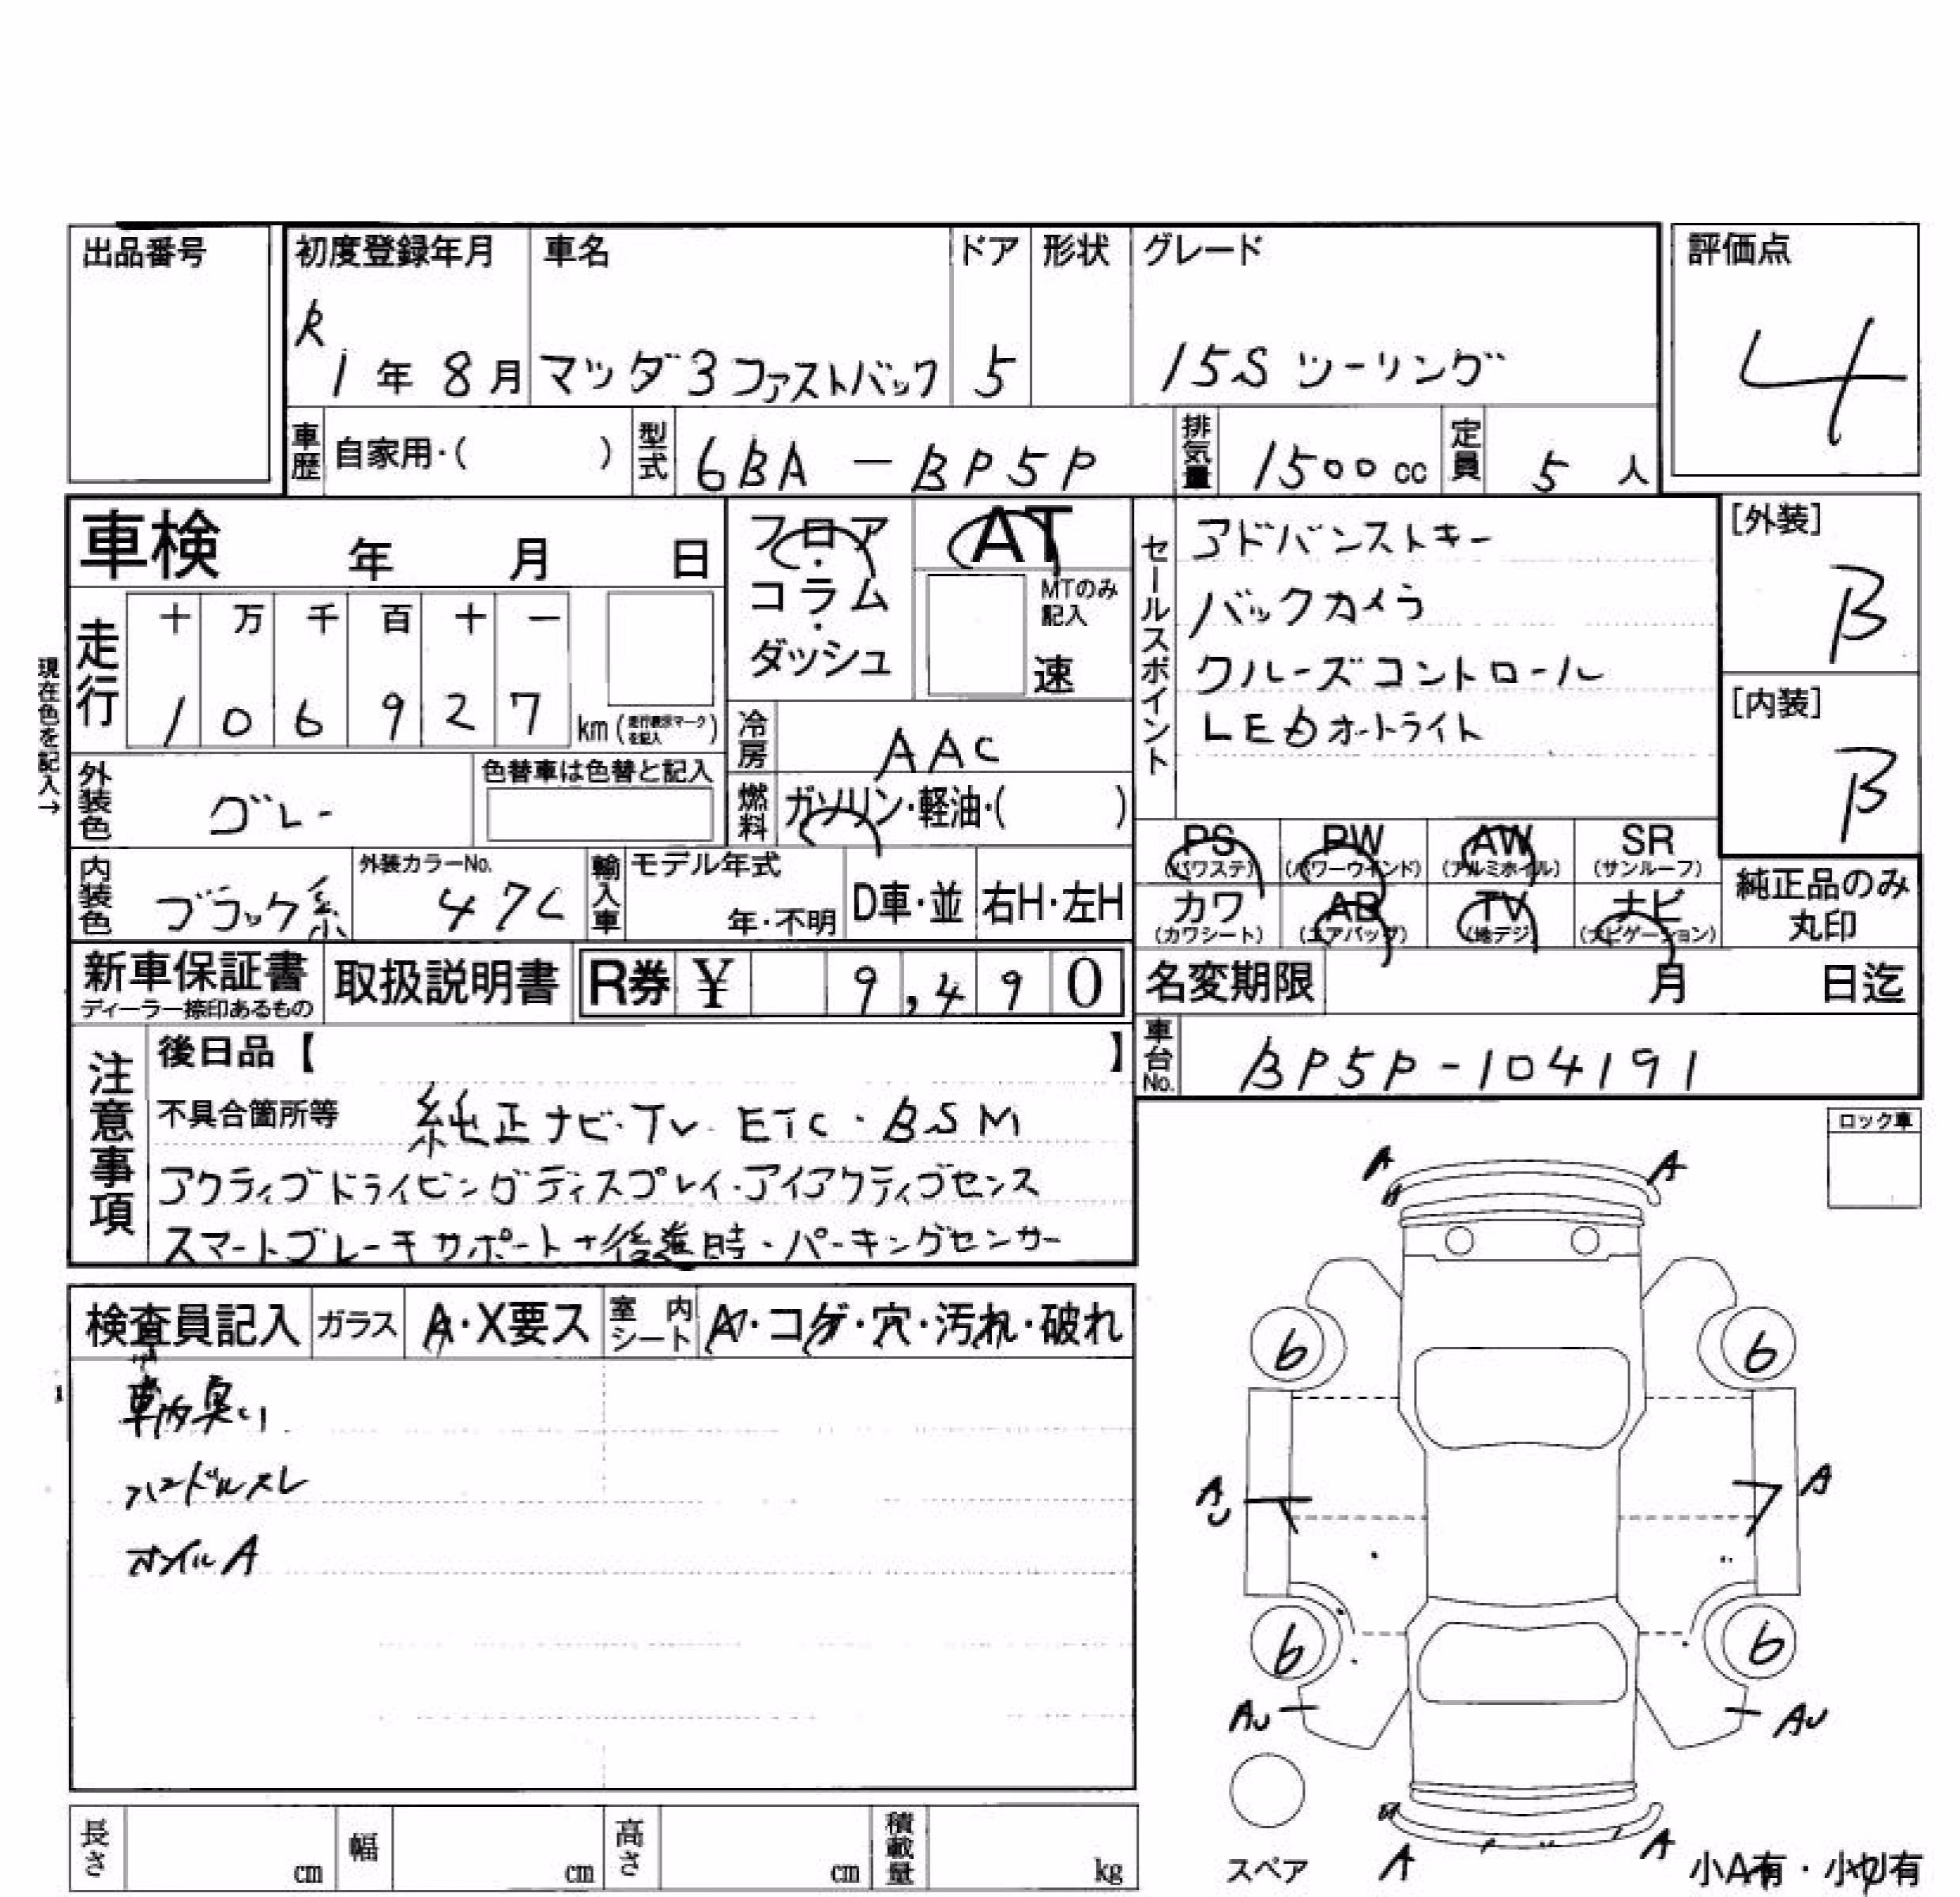 出品番号
初度登録年月 車名 ドア 形状 グレード 評価点
R 1年 8月 マツダ3ファストバック 5 15S ツーリング 4
車歴 自家用・( ) 型式 6BA-BP5P 排気量 1500cc 定員 5人
車検 年 月 日
フロア・コラム・ダッシュ
AT
MTのみ記入
速
セールスポイント
アドバンストキー
バックカメラ
クルーズコントロール
LEDオートライト
[外装] B
[内装] B
現在色を記入→
走行 十 万 千 百 十 一
1 0 6 9 2 7 km (走行表示マークを記入)
冷房 AAC
外装色 グレー 色替車は色替と記入
燃料 ガソリン・軽油・( )
内装色 ブラック系 外装カラーNo. 47C
輸入車 モデル年式 年・不明 D車・並 右H・左H
PS (パワステ) PW (パワーウインド) AW (アルミホイル) SR (サンルーフ)
カワ (カワシート) AB (エアバッグ) TV (地デジ) ナビ (ナビゲーション)
純正品のみ丸印
新車保証書 ディーラー捺印あるもの 取扱説明書 R券 ¥ 9,490
名変期限 月 日迄
車台No. BP5P-104191
注意事項
後日品【 】
不具合箇所等 純正ナビ・TV ETC・BSM
アクティブドライビングディスプレイ・アイアクティブセンス
スマートブレーキサポート+後進時・パーキングセンサー
ロック車
検査員記入 ガラス A・X要ス 室内シート A・コゲ・穴・汚れ・破れ
車内臭い
ハンドルスレ
オイルA
A A
6 6
A U A
6 6
AU AU
A A
スペア
小A有・小U有
長さ cm 幅 cm 高さ cm 積載量 kg